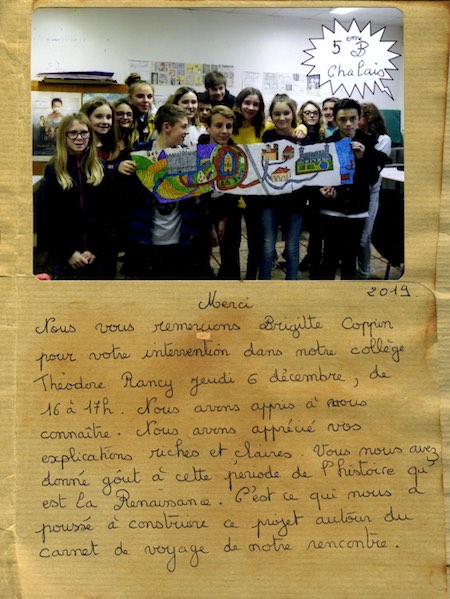 5 ème B
Chalais
2019.
Merci
Nous vous remercions Brigitte Coppin
pour votre intervention dans notre collège
Théodore Rancy jeudi 6 décembre, de
16 à 17h. Nous avons appris à vous
connaître. Nous avons apprécié vos
explications riches et claires. Vous nous avez
donné goût à cette période de l'histoire qu'
est la Renaissance. C'est ce qui nous a
poussé à construire ce projet autour du
carnet de voyage de notre rencontre.